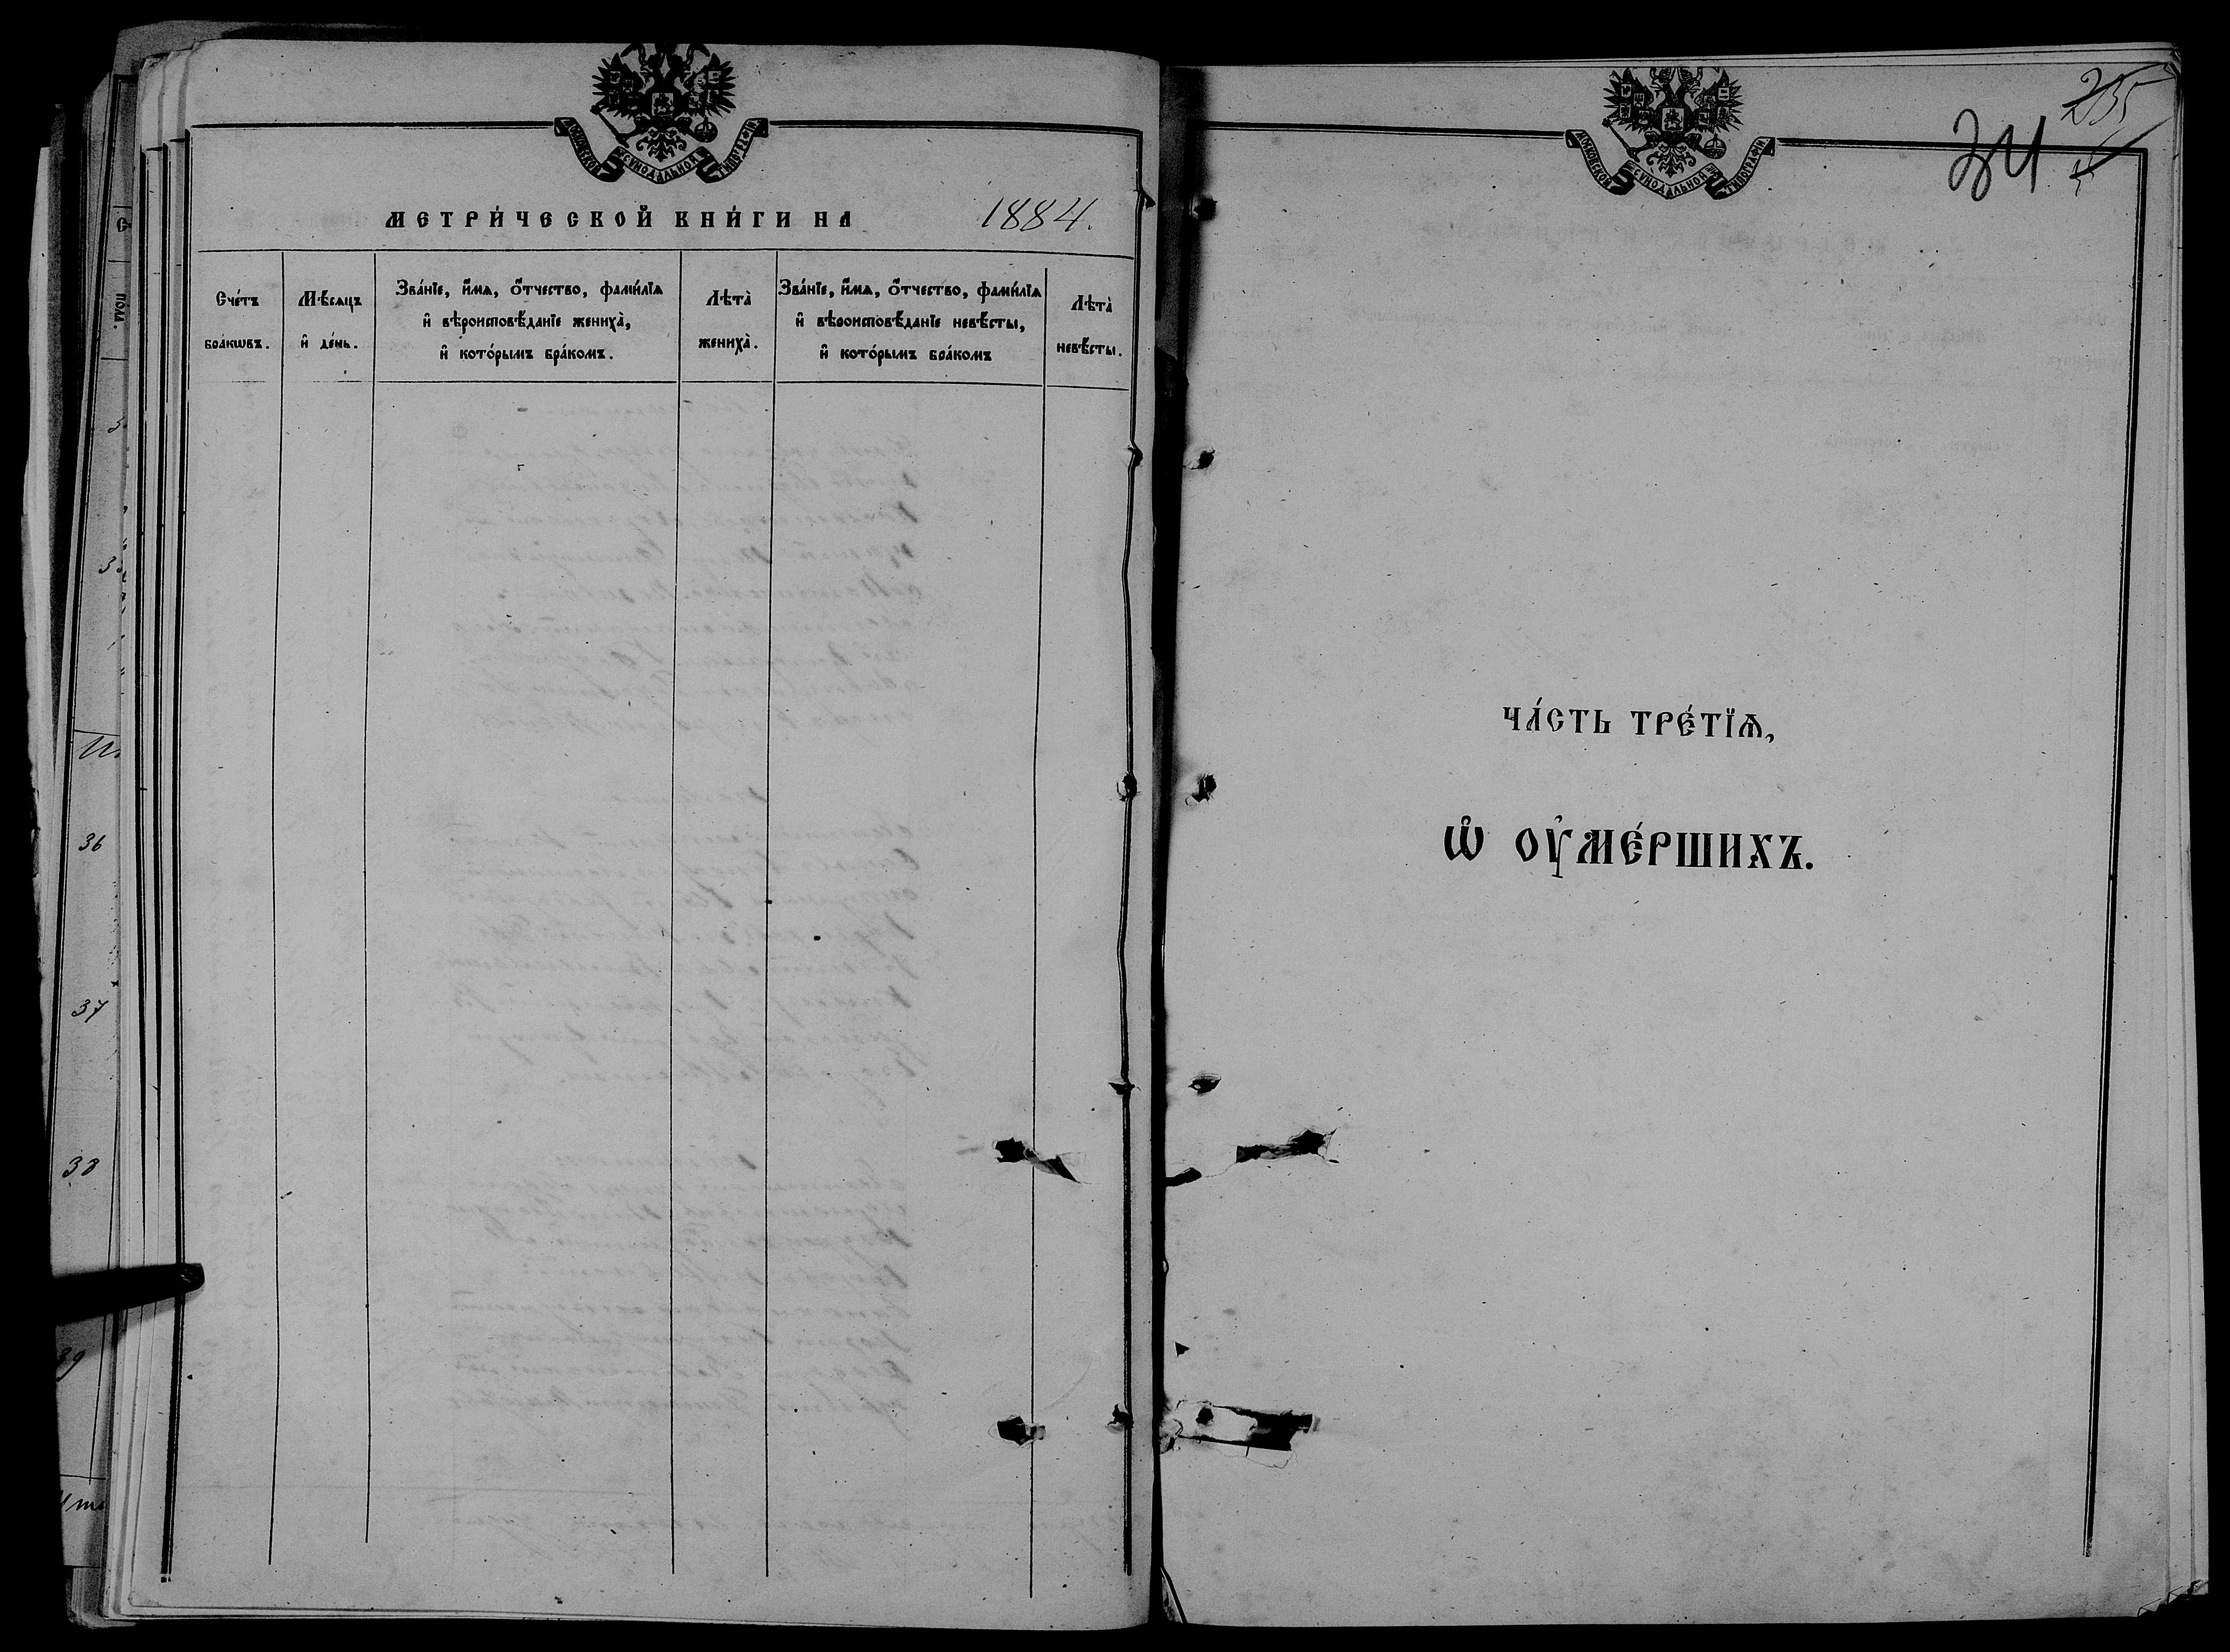 МОСКОВСКОЙ СѴНОДАЛЬНОЙ ТИПОГРАФІИ
МЕТРИ́ЧЕСКОЙ КНИ́ГИ НА 1884.
Сче́тъ
бра́кωвъ.
Мѣ́сяцъ
и҆ де́нь.
Зва́нїе, и҆́мѧ, ѻ҆́тчество, фами́лїѧ
и҆ вѣроисповѣ́данїе женихà,
и҆ кото́рымъ бра́комъ.
Лѣтà
женихà.
Зва́нїе, и҆́мѧ, ѻ҆́тчество, фами́лїѧ
и҆ вѣроисповѣ́данїе невѣ́сты,
и҆ кото́рымъ бра́комъ
Лѣтà
невѣ́сты.
36
37
38
39
МОСКОВСКОЙ СѴНОДАЛЬНОЙ ТИПОГРАФІИ
ЧА́СТЬ ТРЕ́ТЇѦ,
Ѽ ОУ҆МЕ́РШИХЪ.